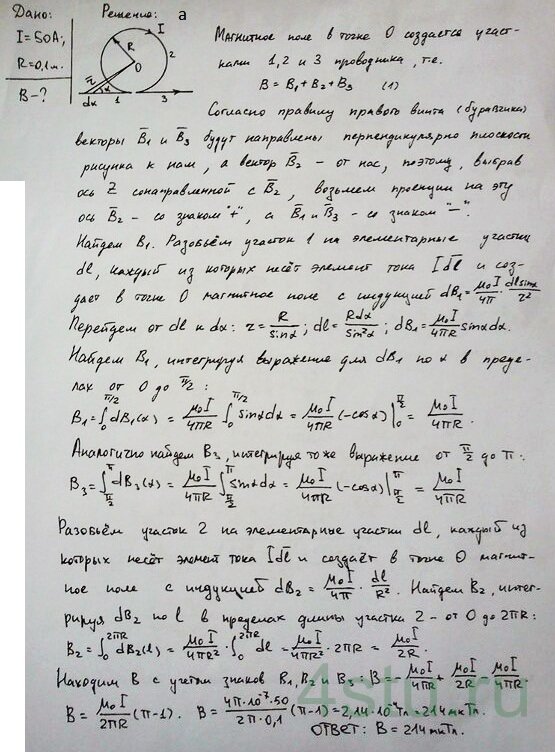 Дано: Решение: а
I=50А;
R=0,1м.
B-?
I
R
2
O
r
α
dα 1 3
Магнитное поле в точке О создается участ-
ками 1,2 и 3 проводника, т.е.
B = B₁ + B₂ + B₃ (1)
Согласно правилу правого винта (буравчика)
векторы B̄₁ и B̄₃ будут направлены перпендикулярно плоскости
рисунка к нам, а вектор B̄₂ - от нас, поэтому, выбрав
ось Z сонаправленной с B̄₂, возьмем проекции на эту
ось B̄₂ - со знаком "+", а B̄₁ и B̄₃ - со знаком "-".
Найдем B₁. Разобьём участок 1 на элементарные участки
dl, каждый из которых несёт элемент тока Idl̄ и соз-
дает в точке О магнитное поле с индукцией dB₁ = μ₀I/4π · dl sinα/r²
Перейдем от dl к dα: r = R/sinα; dl = Rdα/sin²α; dB₁ = μ₀I/4πR sinαdα.
Найдем B₁, интегрируя выражение для dB₁ по α в преде-
лах от 0 до π/2:
B₁ = ∫₀^(π/2) dB₁(α) = μ₀I/4πR ∫₀^(π/2) sinαdα = μ₀I/4πR (-cosα)|₀^(π/2) = μ₀I/4πR.
Аналогично найдем B₃, интегрируя то же выражение от π/2 до π:
B₃ = ∫_(π/2)^π dB₃(α) = μ₀I/4πR ∫_(π/2)^π sinαdα = μ₀I/4πR (-cosα)|_(π/2)^π = μ₀I/4πR
Разобьём участок 2 на элементарные участки dl, каждый из
которых несёт элемент тока Idl̄ и создаёт в точке О магнит-
ное поле с индукцией dB₂ = μ₀I/4π · dl/R². Найдем B₂, интег-
рируя dB₂ по l в пределах длины участка 2 - от 0 до 2πR:
B₂ = ∫₀^(2πR) dB₂(l) = μ₀I/4πR² · ∫₀^(2πR) dl = μ₀I/4πR² · 2πR = μ₀I/2R.
Находим B с учетом знаков B₁, B₂ и B₃: B = -μ₀I/4πR + μ₀I/2R - μ₀I/4πR
B = μ₀I/2πR (π-1). B = 4π·10⁻⁷·50/2π·0,1 (π-1) = 2,14·10⁻⁴Тл = 214мкТл.
Ответ: B = 214мкТл.
4stu.ru